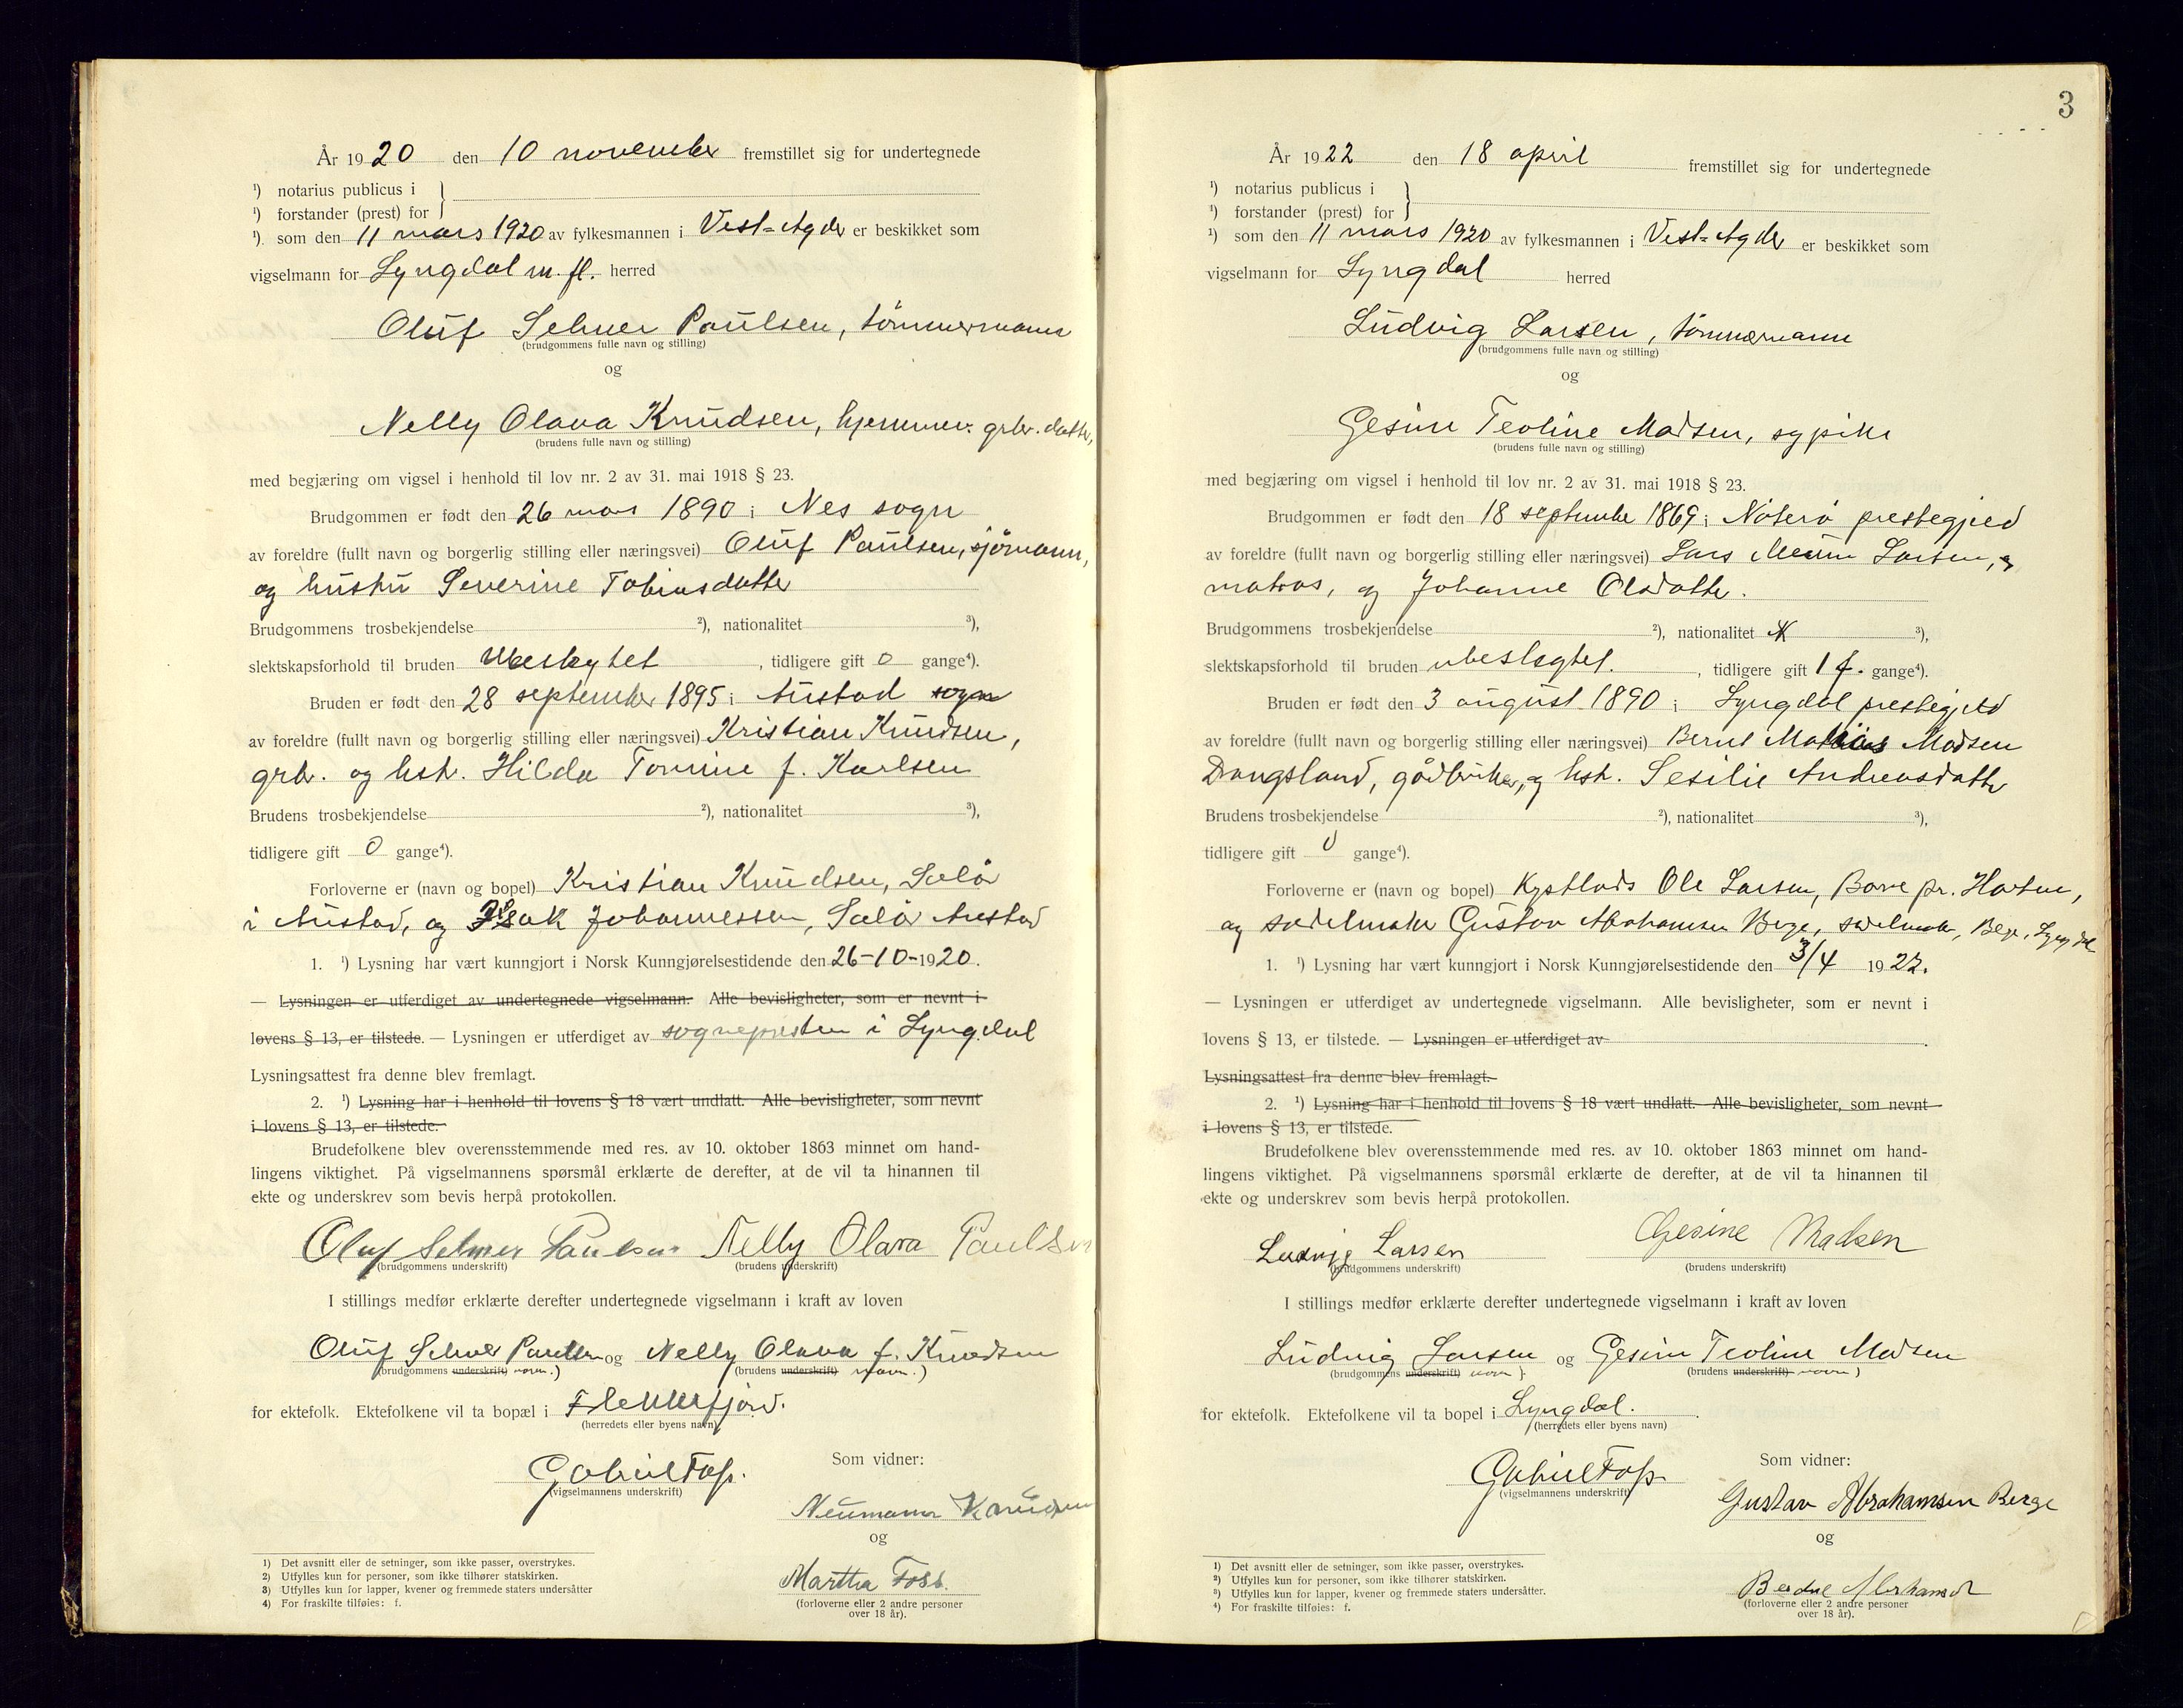 År 1920 den 10 november fremstillet sig for undertegnede
¹) notarius publicus i
¹) forstander (prest) for
¹) som den 11 mars 1920 av fylkesmannen i Vest-Agder er beskikket som
vigselmann for Lyngdal m. fl. herred
Oluf Selmer Paulsen, tömmermann
(brudgommens fulle navn og stilling)
og
Nelly Olava Knudsen, hjemmev. grbr. datter,
(brudens fulle navn og stilling)
med begjæring om vigsel i henhold til lov nr. 2 av 31. mai 1918 § 23.
Brudgommen er født den 26 mars 1890 i Nes sogn
av foreldre (fullt navn og borgerlig stilling eller næringsvei) Oluf Paulsen, sjömann,
og hustru Severine Tobiasdatter
Brudgommens trosbekjendelse ²), nationalitet ³),
slektskapsforhold til bruden Ubeslegtet, tidligere gift 0 gange⁴).
Bruden er født den 28 september 1895 i Austad sogn
av foreldre (fullt navn og borgerlig stilling eller næringsvei) Kristian Knudsen,
grbr. og hstr. Hilda Tomine f. Karlsen
Brudens trosbekjendelse ²), nationalitet ³),
tidligere gift 0 gange⁴).
Forloverne er (navn og bopel) Kristian Knudsen, Sælör
i Austad, og Isak Johannessen, Sælör Austad
1. ¹) Lysning har vært kunngjort i Norsk Kunngjørelsestidende den 26-10-1920.
— Lysningen er utferdiget av undertegnede vigselmann. Alle bevisligheter, som er nevnt i
lovens § 13, er tilstede. — Lysningen er utferdiget av sognepresten i Lyngdal
Lysningsattest fra denne blev fremlagt.
2. ¹) Lysning har i henhold til lovens § 18 vært undlatt. Alle bevisligheter, som nevnt
i lovens § 13, er tilstede.
Brudefolkene blev overensstemmende med res. av 10. oktober 1863 minnet om hand-
lingens viktighet. På vigselmannens spørsmål erklærte de derefter, at de vil ta hinannen til
ekte og underskrev som bevis herpå protokollen.
Oluf Selmer Paulsen Nelly Olava Paulsen
(brudgommens underskrift) (brudens underskrift)
I stillings medfør erklærte derefter undertegnede vigselmann i kraft av loven
Oluf Selmer Paulsen og Nelly Olava f. Knudsen
(brudgommens underskrift) navn.) (brudens underskrift) navn.)
for ektefolk. Ektefolkene vil ta bopæl i Flekkefjord.
(herredets eller byens navn)
Gabriel Foss.
(vigselmannens underskrift)
Som vidner:
Neumann Knudsen
og
Martha Foss.
(forloverne eller 2 andre personer
over 18 år).
1) Det avsnitt eller de setninger, som ikke passer, overstrykes.
2) Utfylles kun for personer, som ikke tilhører statskirken.
3) Utfylles kun for lapper, kvener og fremmede staters undersåtter
4) For fraskilte tilføies: f.
3
År 1922 den 18 april fremstillet sig for undertegnede
¹) notarius publicus i
¹) forstander (prest) for
¹) som den 11 mars 1920 av fylkesmannen i Vest-Agder er beskikket som
vigselmann for Lyngdal herred
Ludvig Larsen, tömmermann
(brudgommens fulle navn og stilling)
og
Gesine Teoline Madsen, sypike
(brudens fulle navn og stilling)
med begjæring om vigsel i henhold til lov nr. 2 av 31. mai 1918 § 23.
Brudgommen er født den 18 september 1869 i Nøterö prestegjeld
av foreldre (fullt navn og borgerlig stilling eller næringsvei) Lars Larsen,
matros, og Johanne Olsdatter.
Brudgommens trosbekjendelse ²), nationalitet ³),
slektskapsforhold til bruden ubeslegtet., tidligere gift 1 f. gange⁴).
Bruden er født den 3 august 1890 i Lyngdal prestegjeld
av foreldre (fullt navn og borgerlig stilling eller næringsvei) Bernt Mathias Madsen
Drangsland, gårdbruker, og hstr. Sesilie Andreasdatter
Brudens trosbekjendelse ²), nationalitet ³),
tidligere gift 0 gange⁴).
Forloverne er (navn og bopel) Kystlods Ole Larsen, Borre pr. Horten,
og sadelmaker Gustav Abrahamsen Berge, sadelmaker, Berge, Lyngdal
1. ¹) Lysning har vært kunngjort i Norsk Kunngjørelsestidende den 3/4 1922.
— Lysningen er utferdiget av undertegnede vigselmann. Alle bevisligheter, som er nevnt i
lovens § 13, er tilstede. — Lysningen er utferdiget av .
Lysningsattest fra denne blev fremlagt.
2. ¹) Lysning har i henhold til lovens § 18 vært undlatt. Alle bevisligheter, som nevnt
i lovens § 13, er tilstede.
Brudefolkene blev overensstemmende med res. av 10. oktober 1863 minnet om hand-
lingens viktighet. På vigselmannens spørsmål erklærte de derefter, at de vil ta hinannen til
ekte og underskrev som bevis herpå protokollen.
Ludvig Larsen Gesine Madsen
(brudgommens underskrift) (brudens underskrift)
I stillings medfør erklærte derefter undertegnede vigselmann i kraft av loven
Ludvig Larsen og Gesine Teoline Madsen
(brudgommens underskrift) navn). (brudens underskrift) navn)
for ektefolk. Ektefolkene vil ta bopel i Lyngdal.
(herredets eller byens navn)
Gabriel Foss
(vigselmannens underskrift)
Som vidner:
Gustav Abrahamsen Berge
og
Abrahamsen
(forloverne eller 2 andre personer
over 18 år).
1) Det avsnitt eller de setninger, som ikke passer, overstrykes.
2) Utfylles kun for personer, som ikke tilhører statskirken.
3) Utfylles kun for lapper, kvener og fremmede staters undersåtter.
4) For fraskilte tilføies: f.